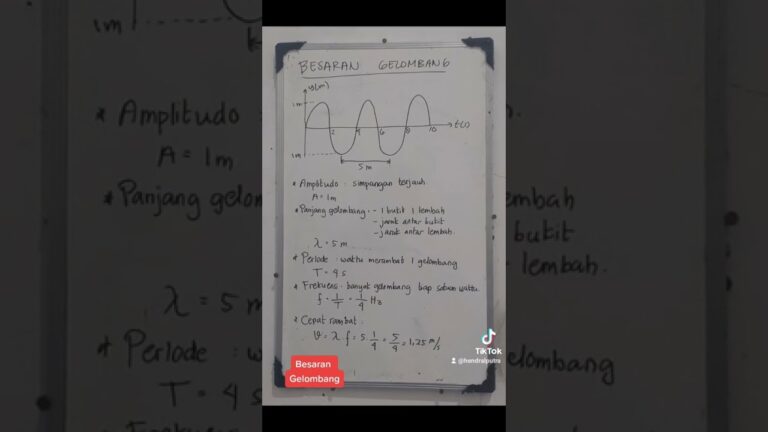 BESARAN GELOMBANG
y(m)
1m
2 4 6 8 10 t(s)
1m
5 m
* Amplitudo : simpangan terjauh
A = 1m
* Panjang gelombang - 1 bukit 1 lembah
- jarak antar bukit
- jarak antar lembah.
λ = 5 m
* Periode : waktu merambat 1 gelombang
T = 4 s
* Frekuensi : banyak gelombang tiap satuan waktu.
f = 1/T = 1/4 Hz
* Cepat rambat :
v = λ f = 5 . 1/4 = 5/4 = 1,25 m/s
Besaran
Gelombang
TikTok
@hendralputra
1m
Amplitudo :
A = 1m
Panjang gelombang
λ = 5 m
Periode :
T = 4 s
lembah
bukit
lembah.